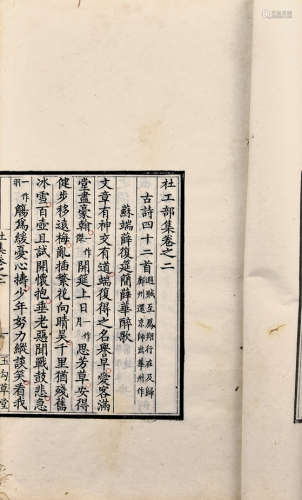 杜工部集卷之二
古詩四十二首 避賊至鳳翔行在及歸
鄜州還京師出華州作
蘇端薛復延簡薛華醉歌
文章有神交有道端復得之名譽早愛客滿
堂盡豪翰一作傑開延上日一作月思芳草安得
健步移遠梅亂插繁花向晴昊千里猶殘舊
冰雪百壺且試開懷抱垂老惡聞戰鼓悲急
一作羽觴為緩憂心擣少年努力縱談笑看我
玉勾草堂